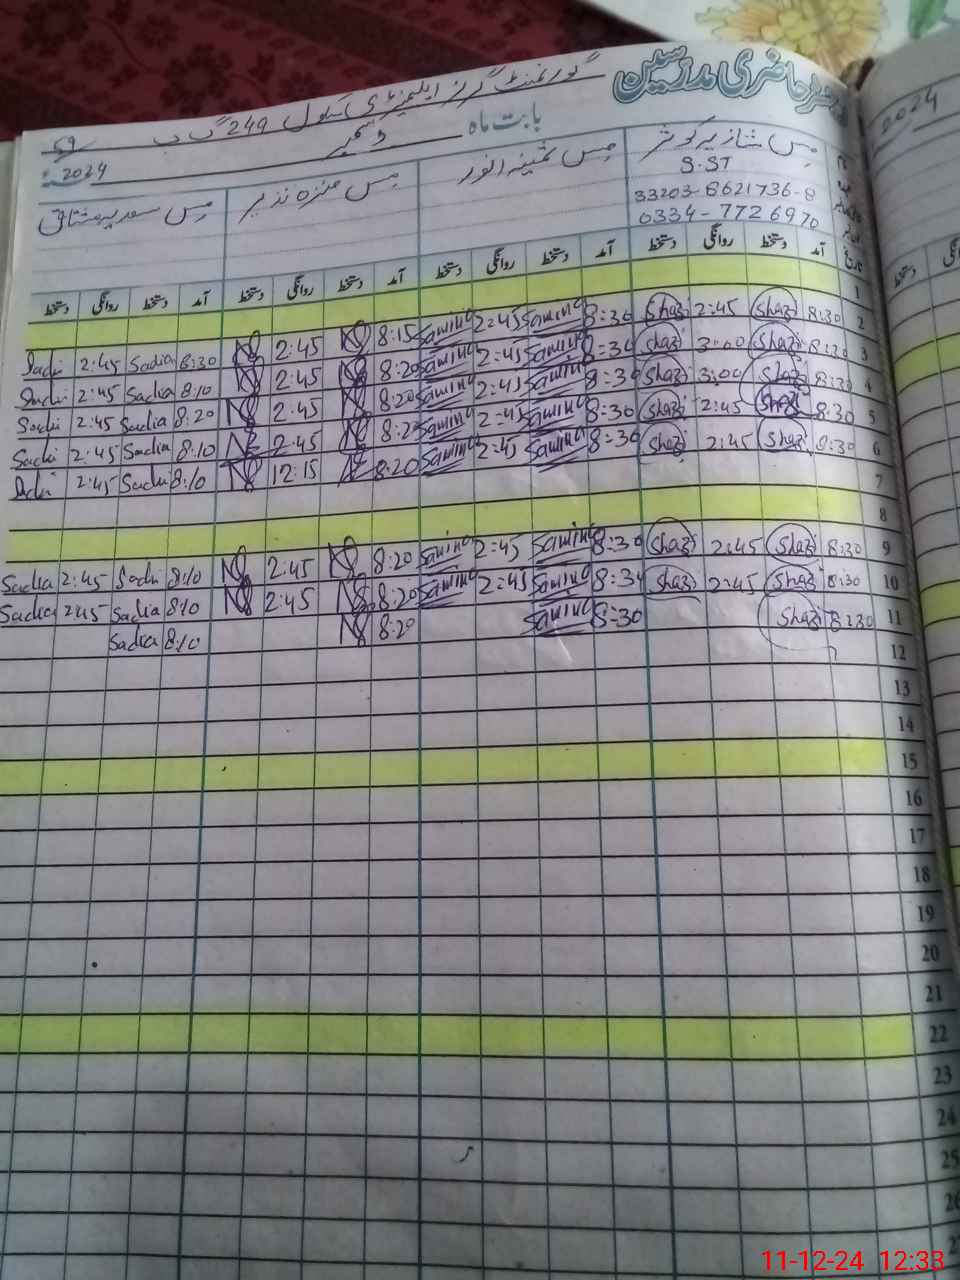 رجسٹر حاضری مدرسین
گورنمنٹ گرلز ایلیمنٹری سکول 249 گ ب
بابت ماہ دسمبر
2024
مس شازیہ کوثر
S.ST
33203-8621736-8
0334-7726970
مس ثمینہ انور
مس منزہ نذیر
مس سعدیہ مشتاق
تاریخ آمد دستخط روانگی دستخط آمد دستخط روانگی دستخط آمد دستخط روانگی دستخط آمد دستخط روانگی دستخط
1
2 8:30 Shazi 2:45 Shazi 8:30 Samina 2:45 Samina 8:15 2:45 8:30 Sadia 2:45 Sadi
3 8:30 Shazi 3:00 Shazi 8:30 Samina 2:45 Samina 8:20 2:45 8:10 Sadia 2:45 Sadi
4 8:30 Shazi 3:00 Shazi 8:30 Samina 2:45 Samina 8:20 2:45 8:20 Sadia 2:45 Sadi
5 8:30 Shazi 2:45 Shazi 8:30 Samina 2:45 Samina 2:45 8:10 Sadia 2:45 Sadi
6 8:30 Shazi 2:45 Shazi 8:30 Samina 2:45 Samina 8:20 12:15 8:10 Sadi 2:45 Sadi
7
8
9 8:30 Shazi 2:45 Shazi 8:30 Samina 2:45 Samina 8:20 2:45 8:10 Sadi 2:45 Sadia
10 8:30 Shazi 2:45 Shazi 8:30 Samina 2:45 Samina 8:20 2:45 8:10 Sadia 2:45 Sadia
11 8:30 Shazi 8:30 Samina 8:20 8:10 Sadia
12
13
14
15
16
17
18
19
20
21
22
23
24
25
26
2024
دستخط
11-12-24 12:33